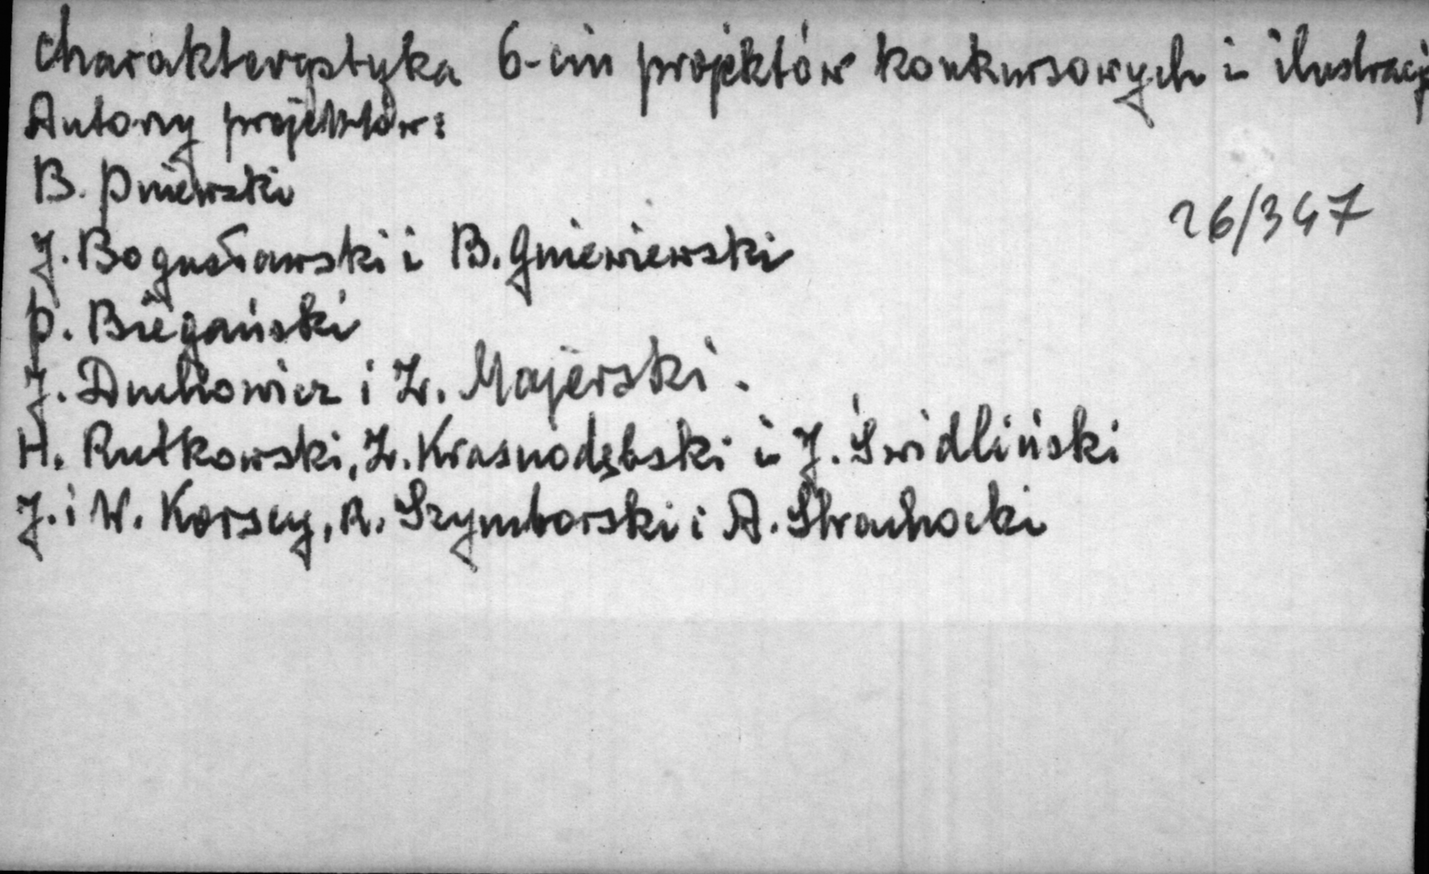 Charakterystyka 6-ciu projektów konkursowych i ilustracje
Autorzy projektów:
B. Pniewski
26/347
J. Bogusławski i B. Gniewiewski
P. Biegański
J. Duchowicz i Z. Majerski.
H. Rutkowski, Z. Krasnodębski i J. Świdliński
J. i W. Korscy, R. Szymborski i A. Strachocki